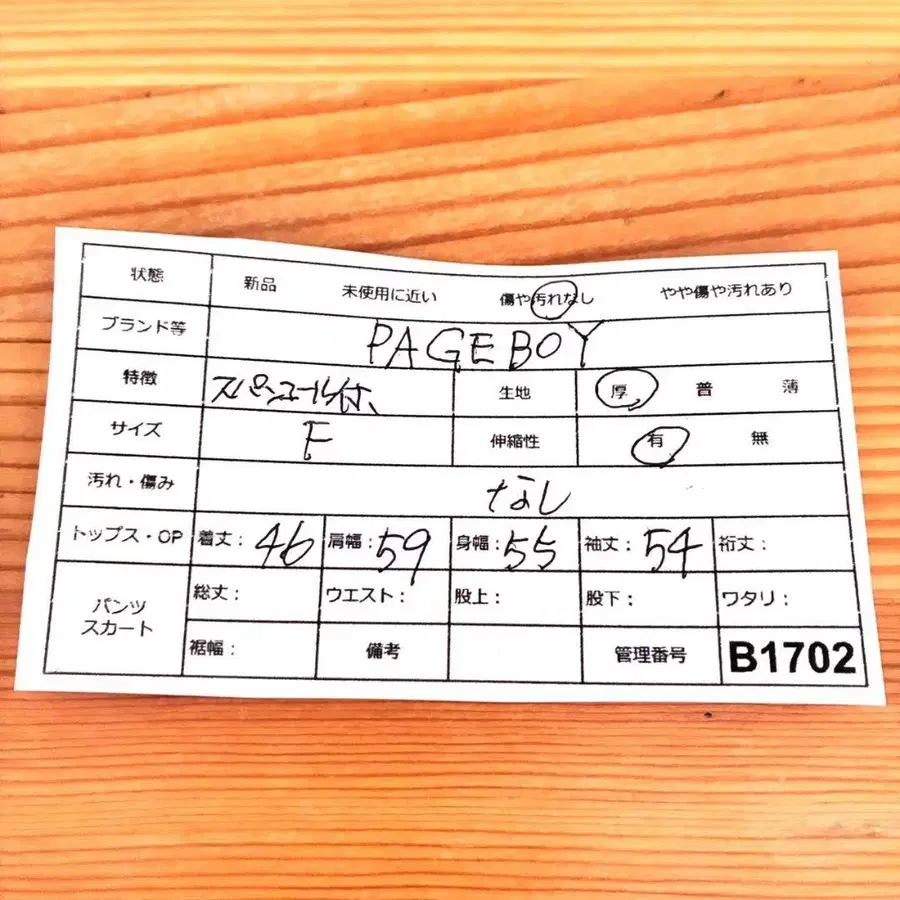 状態 新品 未使用に近い 傷や汚れなし やや傷や汚れあり
ブランド等 PAGEBOY
特徴 スパンコール付 生地 厚 普 薄
サイズ F 伸縮性 有 無
汚れ・傷み なし
トップス・OP 着丈: 46 肩幅: 59 身幅: 55 袖丈: 54 裄丈:
パンツ スカート 総丈: ウエスト: 股上: 股下: ワタリ:
裾幅: 備考 管理番号 B1702